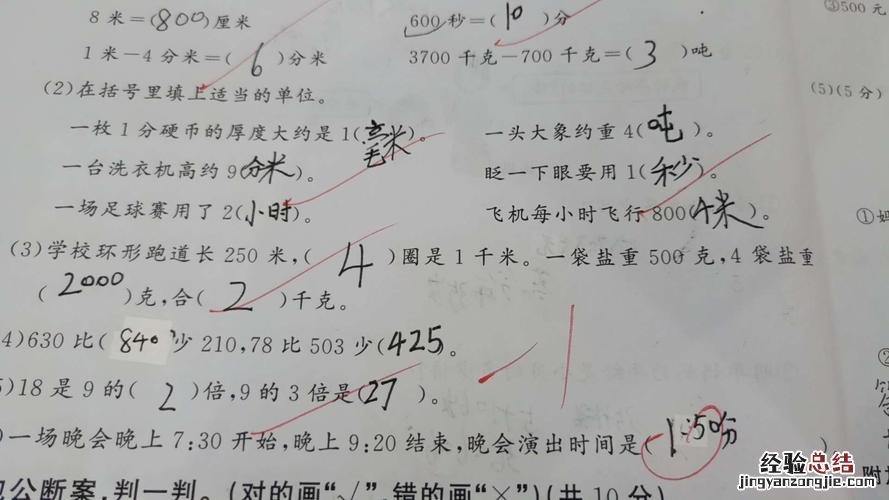 8米=(800)厘米 600秒=(10)分
③500元
1米-4分米=(6)分米 3700千克-700千克=(3)吨
(2)在括号里填上适当的单位。
(5)(5分)
一枚1分硬币的厚度大约是1(毫米)。 一头大象约重4(吨)。
一台洗衣机高约9(分米)。 眨一下眼要用1(秒)。
一场足球赛用了2(小时)。 飞机每小时飞行800(千米)。
(3)学校环形跑道长250米,(4)圈是1千米。一袋盐重500克,4袋盐重
(2000)克,合(2)千克。
4)630比(840)少210,78比503少(425)。
)18是9的(2)倍,9的3倍是(27)。
)一场晚会晚上7:30开始,晚上9:20结束,晚会演出时间是(1:50分)
公断案,判一判。(对的画“√”,错的画“×”)(共10分)
经验总结
jingyanzongjie.com